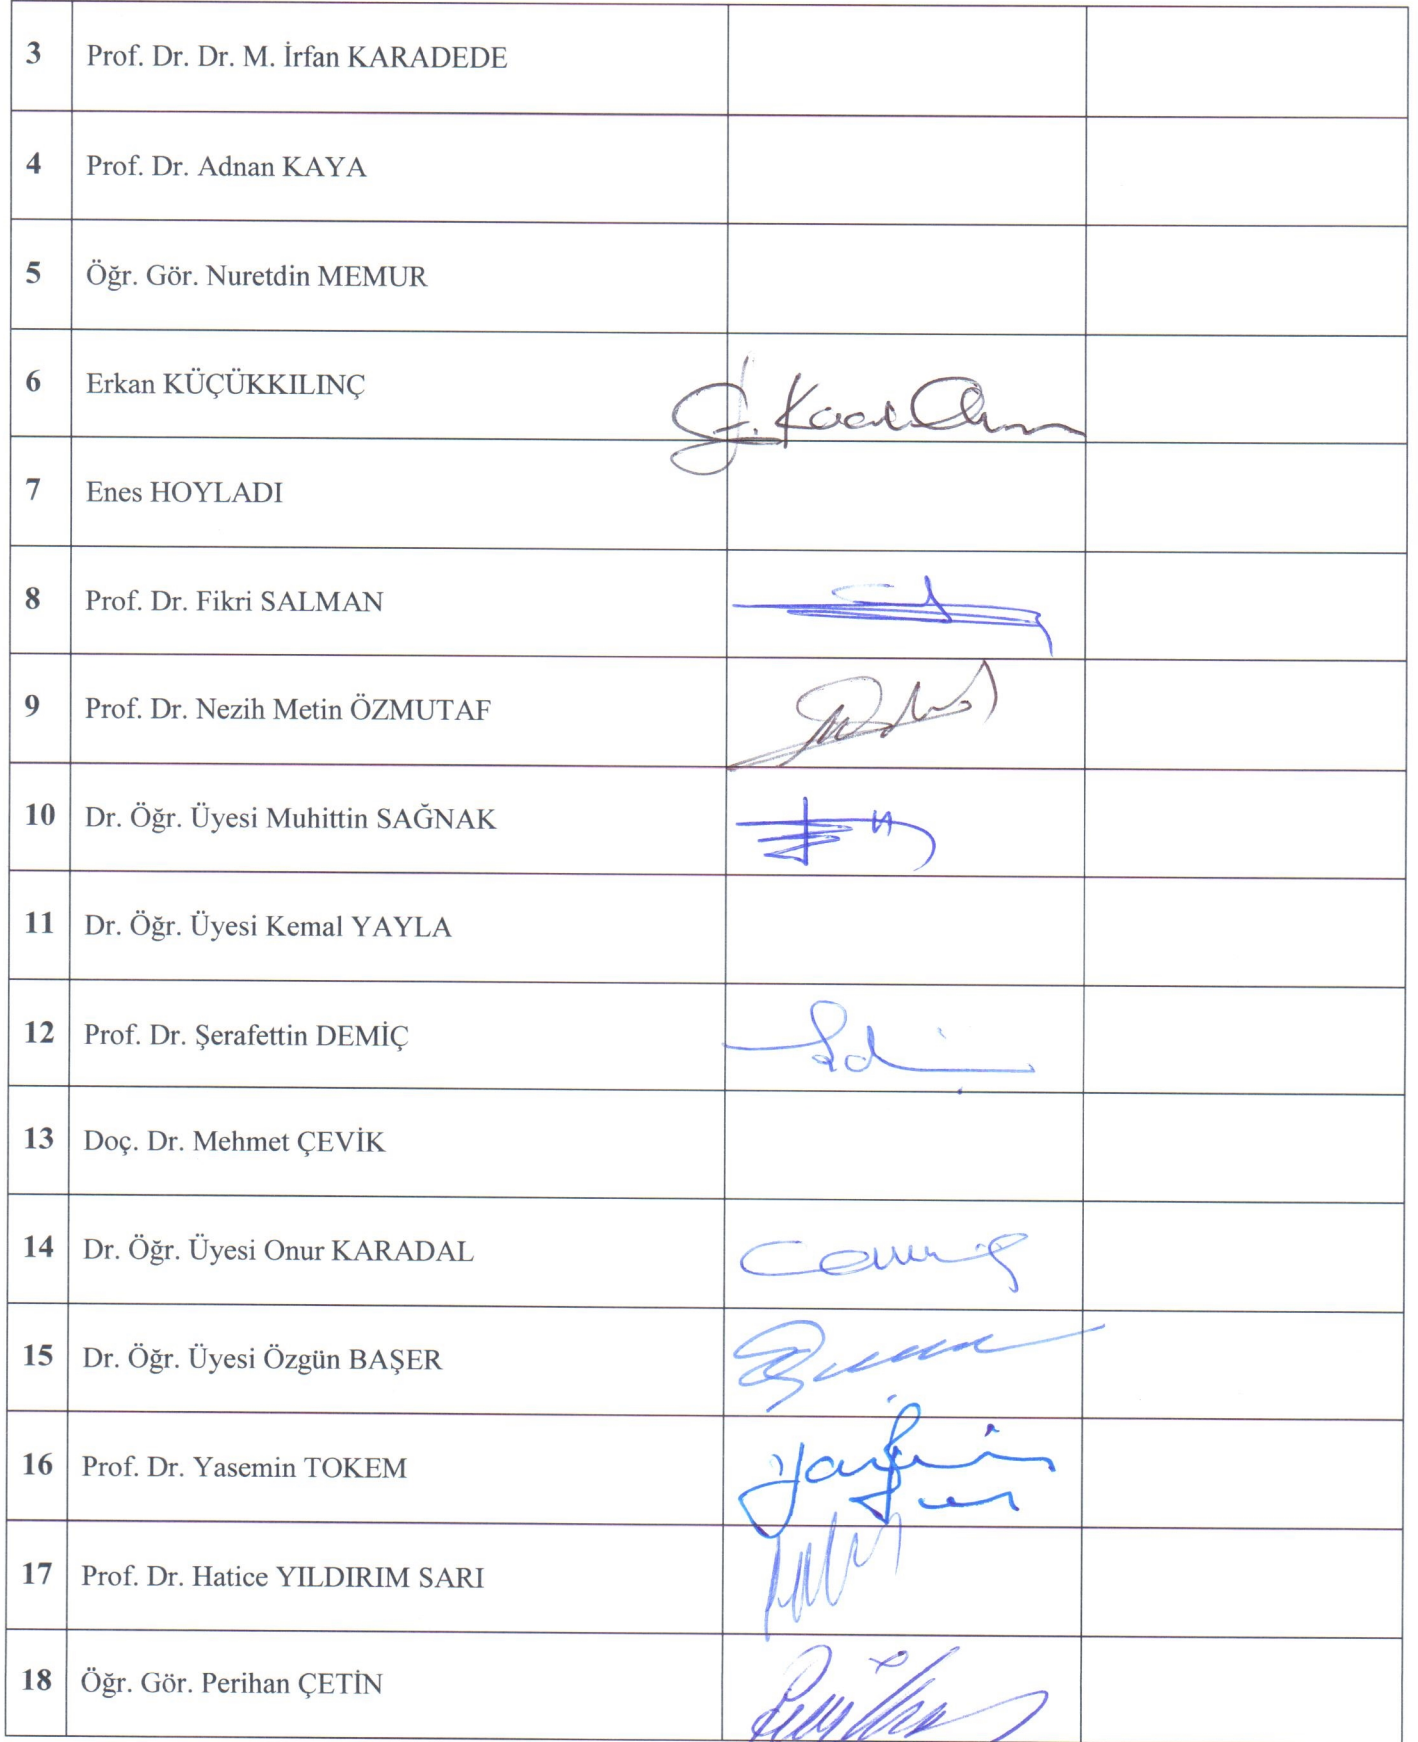 3 Prof. Dr. Dr. M. İrfan KARADEDE
4 Prof. Dr. Adnan KAYA
5 Öğr. Gör. Nuretdin MEMUR
6 Erkan KÜÇÜKKILINÇ
7 Enes HOYLADI
8 Prof. Dr. Fikri SALMAN
9 Prof. Dr. Nezih Metin ÖZMUTAF
10 Dr. Öğr. Üyesi Muhittin SAĞNAK
11 Dr. Öğr. Üyesi Kemal YAYLA
12 Prof. Dr. Şerafettin DEMİÇ
13 Doç. Dr. Mehmet ÇEVİK
14 Dr. Öğr. Üyesi Onur KARADAL
15 Dr. Öğr. Üyesi Özgün BAŞER
16 Prof. Dr. Yasemin TOKEM
17 Prof. Dr. Hatice YILDIRIM SARI
18 Öğr. Gör. Perihan ÇETİN